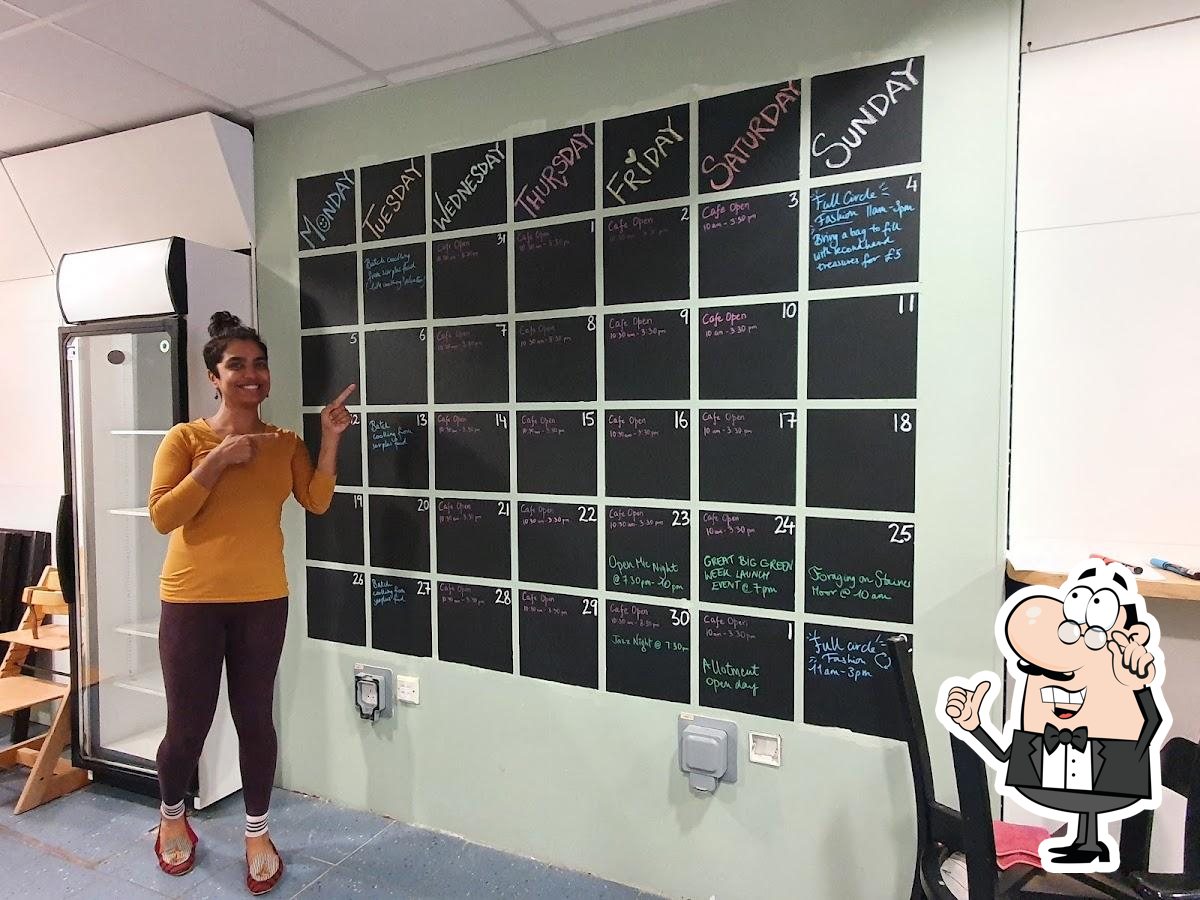 MONDAY
TUESDAY
WEDNESDAY
THURSDAY
FRIDAY
SATURDAY
SUNDAY
Batch cooking
from surplus food
31
Cafe Open
10:30 am - 3:30 pm
1
Cafe Open
10:30 am - 3:30 pm
2
Cafe Open
10:30 am - 3:30 pm
3
Cafe Open
10 am - 3:30 pm
4
Full Circle
Fashion 11am-3pm
Bring a bag to fill
with secondhand
treasures for £5
5
6
7
Cafe Open
10:30 am - 3:30 pm
8
Cafe Open
10:30 am - 3:30 pm
9
Cafe Open
10:30 am - 3:30 pm
10
Cafe Open
10 am - 3:30 pm
11
12
13
Batch
cooking from
surplus food
14
Cafe Open
10:30 am - 3:30 pm
15
Cafe Open
10:30 am - 3:30 pm
16
Cafe Open
10:30 am - 3:30 pm
17
Cafe Open
10 am - 3:30 pm
18
19
20
21
Cafe Open
10:30 am - 3:30 pm
22
Cafe Open
10:30 am - 3:30 pm
23
Cafe Open
10:30 am - 3:30 pm
Open Mic Night
@ 7:30pm-10pm
24
Cafe Open
10am - 3:30 pm
GREAT BIG GREEN
WEEK LAUNCH
EVENT @ 7pm
25
Foraging on
Moor @ 10am
26
27
Batch
cooking from
surplus food
28
Cafe Open
10:30 am - 3:30 pm
29
Cafe Open
10:30 am - 3:30 pm
30
Cafe Open
10:30 am - 3:30 pm
Jazz Night @ 7:30pm
1
Cafe Open
10am - 3:30pm
Allotment
Open day
Full circle
Fashion
11am-3pm